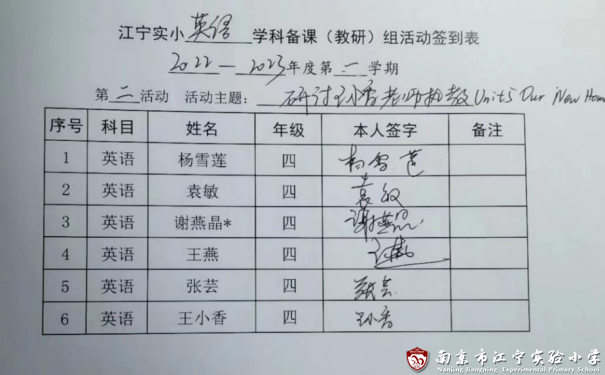 江宁实小 英语 学科备课（教研）组活动签到表
2022—2023年度第二学期
第二活动 活动主题：研讨王小香老师执教Unit5 Our New Home
序号 科目 姓名 年级 本人签字 备注
1 英语 杨雪莲 四 杨雪莲
2 英语 袁敏 四 袁敏
3 英语 谢燕晶* 四 谢燕晶
4 英语 王燕 四
5 英语 张芸 四 张芸
6 英语 王小香 四 王小香
南京市江宁实验小学
Nanjing Jiangning Experimental Primary School